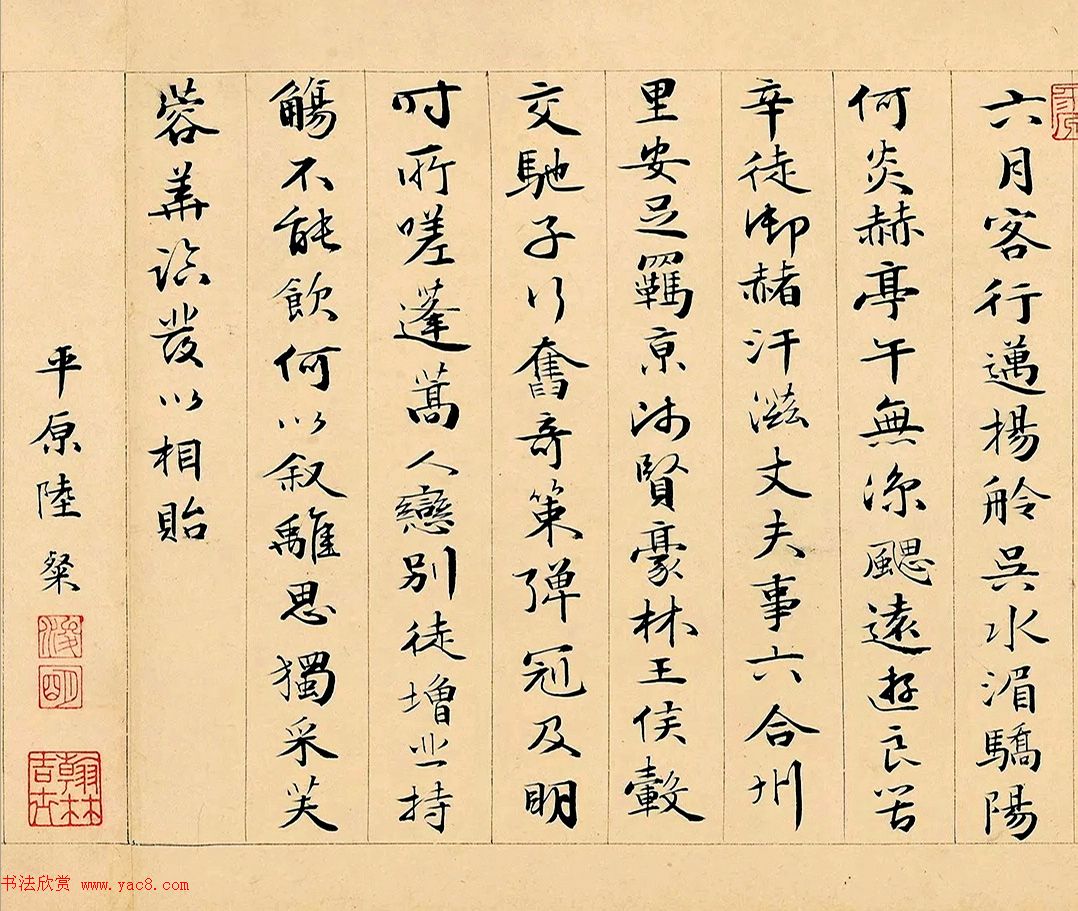 六月客行邁揚舲吳水湄驕陽
何炎赫亭午無涼颸遠遊良苦
辛徒御赭汗滋丈夫事六合州
里安足羈京師賢豪林王侯轂
交馳子行奮奇策彈冠及明
時所嗟蓬蒿人戀別徒增悲持
觴不能飲何以叙離思獨采芙
蓉華臨發以相貽
平原陸粲
浚明
翰林吉士
书法欣赏 www.yac8.com